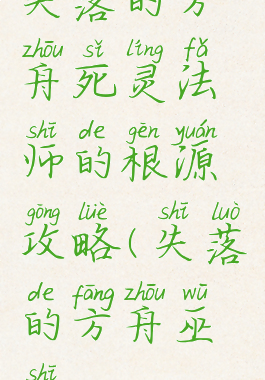 失落的方
zhōu sǐ líng fǎ
舟死灵法
shī de gēn yuán
师的根源
gōng lüè shī luò
攻略(失落
de fāng zhōu wū
的方舟巫
shī